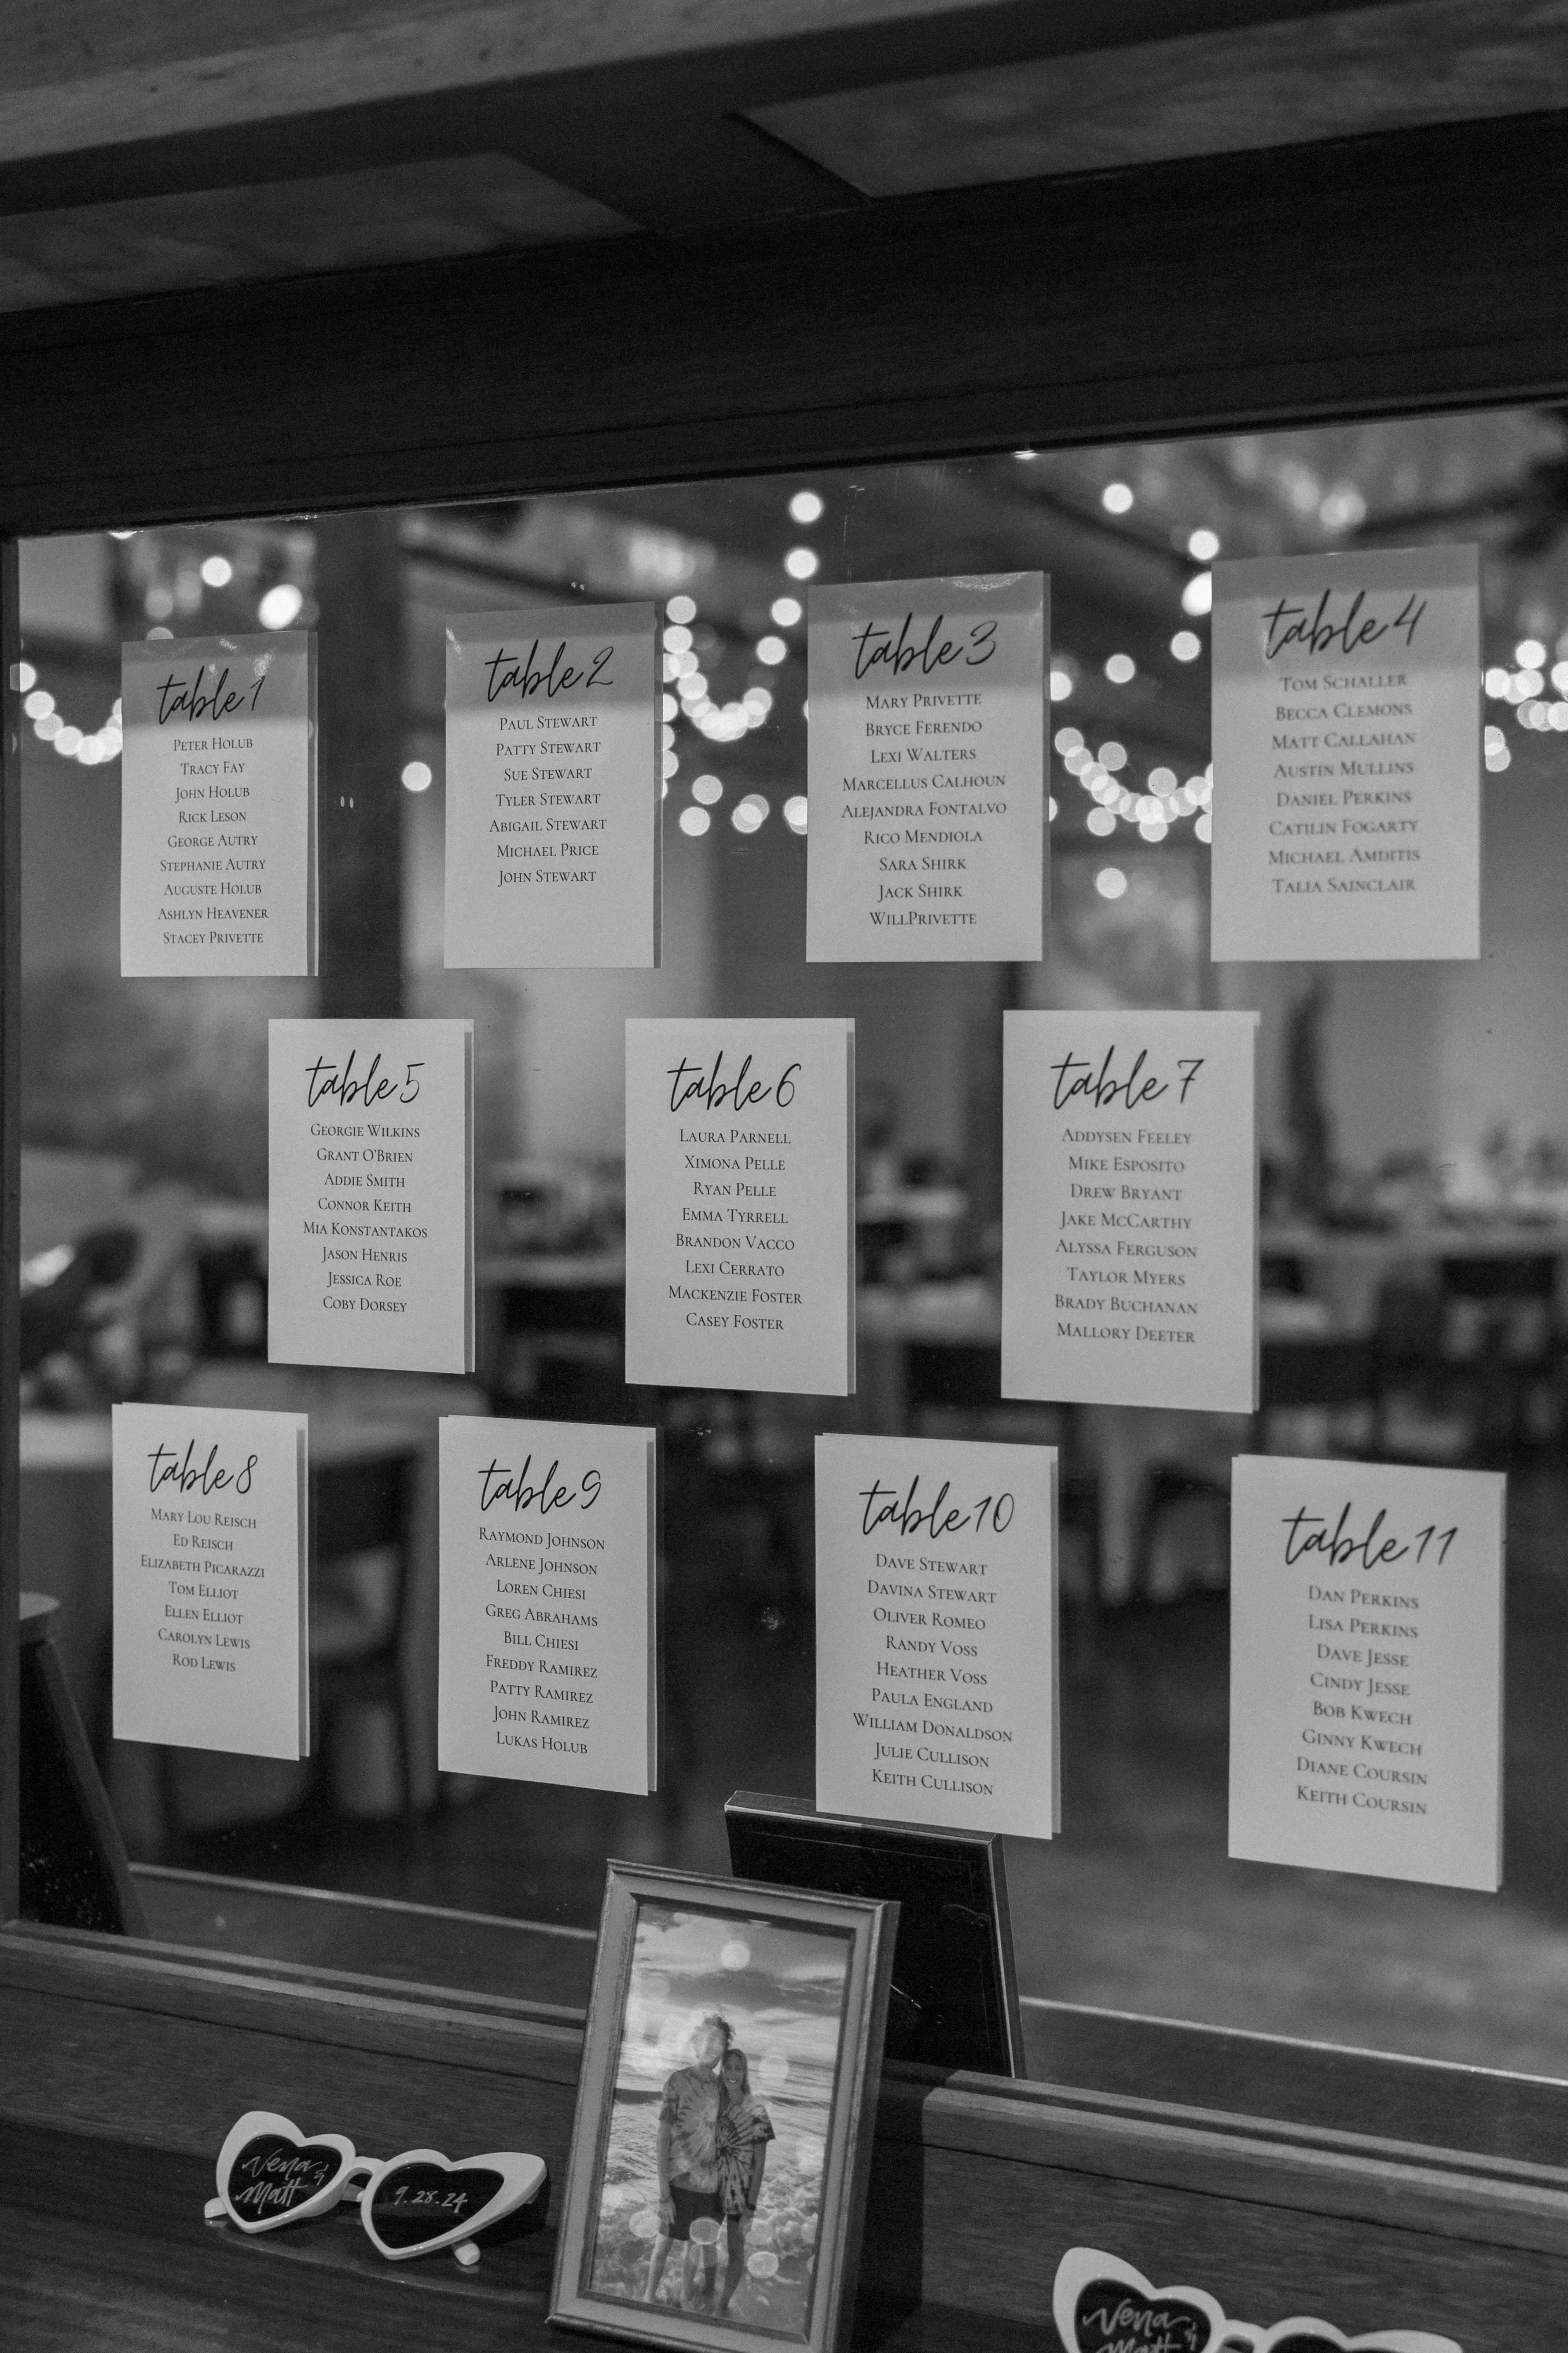 table 1
Peter Holub
Tracy Fay
John Holub
Rick Leson
George Autry
Stephanie Autry
Auguste Holub
Ashlyn Heavener
Stacey Privette
table 2
Paul Stewart
Patty Stewart
Sue Stewart
Tyler Stewart
Abigail Stewart
Michael Price
John Stewart
table 3
Mary Privette
Bryce Ferendo
Lexi Walters
Marcellus Calhoun
Alejandra Fontalvo
Rico Mendiola
Sara Shirk
Jack Shirk
WillPrivette
table 4
Tom Schaller
Becca Clemons
Matt Callahan
Austin Mullins
Daniel Perkins
Catilin Fogarty
Michael Amditis
Talia Sainclair
table 5
Georgie Wilkins
Grant O'Brien
Addie Smith
Connor Keith
Mia Konstantakos
Jason Henris
Jessica Roe
Coby Dorsey
table 6
Laura Parnell
Ximona Pelle
Ryan Pelle
Emma Tyrrell
Brandon Vacco
Lexi Cerrato
Mackenzie Foster
Casey Foster
table 7
Addysen Feeley
Mike Esposito
Drew Bryant
Jake McCarthy
Alyssa Ferguson
Taylor Myers
Brady Buchanan
Mallory Deeter
table 8
Mary Lou Reisch
Ed Reisch
Elizabeth Picarazzi
Tom Elliot
Ellen Elliot
Carolyn Lewis
Rod Lewis
table 9
Raymond Johnson
Arlene Johnson
Loren Chiesi
Greg Abrahams
Bill Chiesi
Freddy Ramirez
Patty Ramirez
John Ramirez
Lukas Holub
table 10
Dave Stewart
Davina Stewart
Oliver Romeo
Randy Voss
Heather Voss
Paula England
William Donaldson
Julie Cullison
Keith Cullison
table 11
Dan Perkins
Lisa Perkins
Dave Jesse
Cindy Jesse
Bob Kwech
Ginny Kwech
Diane Coursin
Keith Coursin
Vena &
Matt
9.28.24
Vena &
Matt